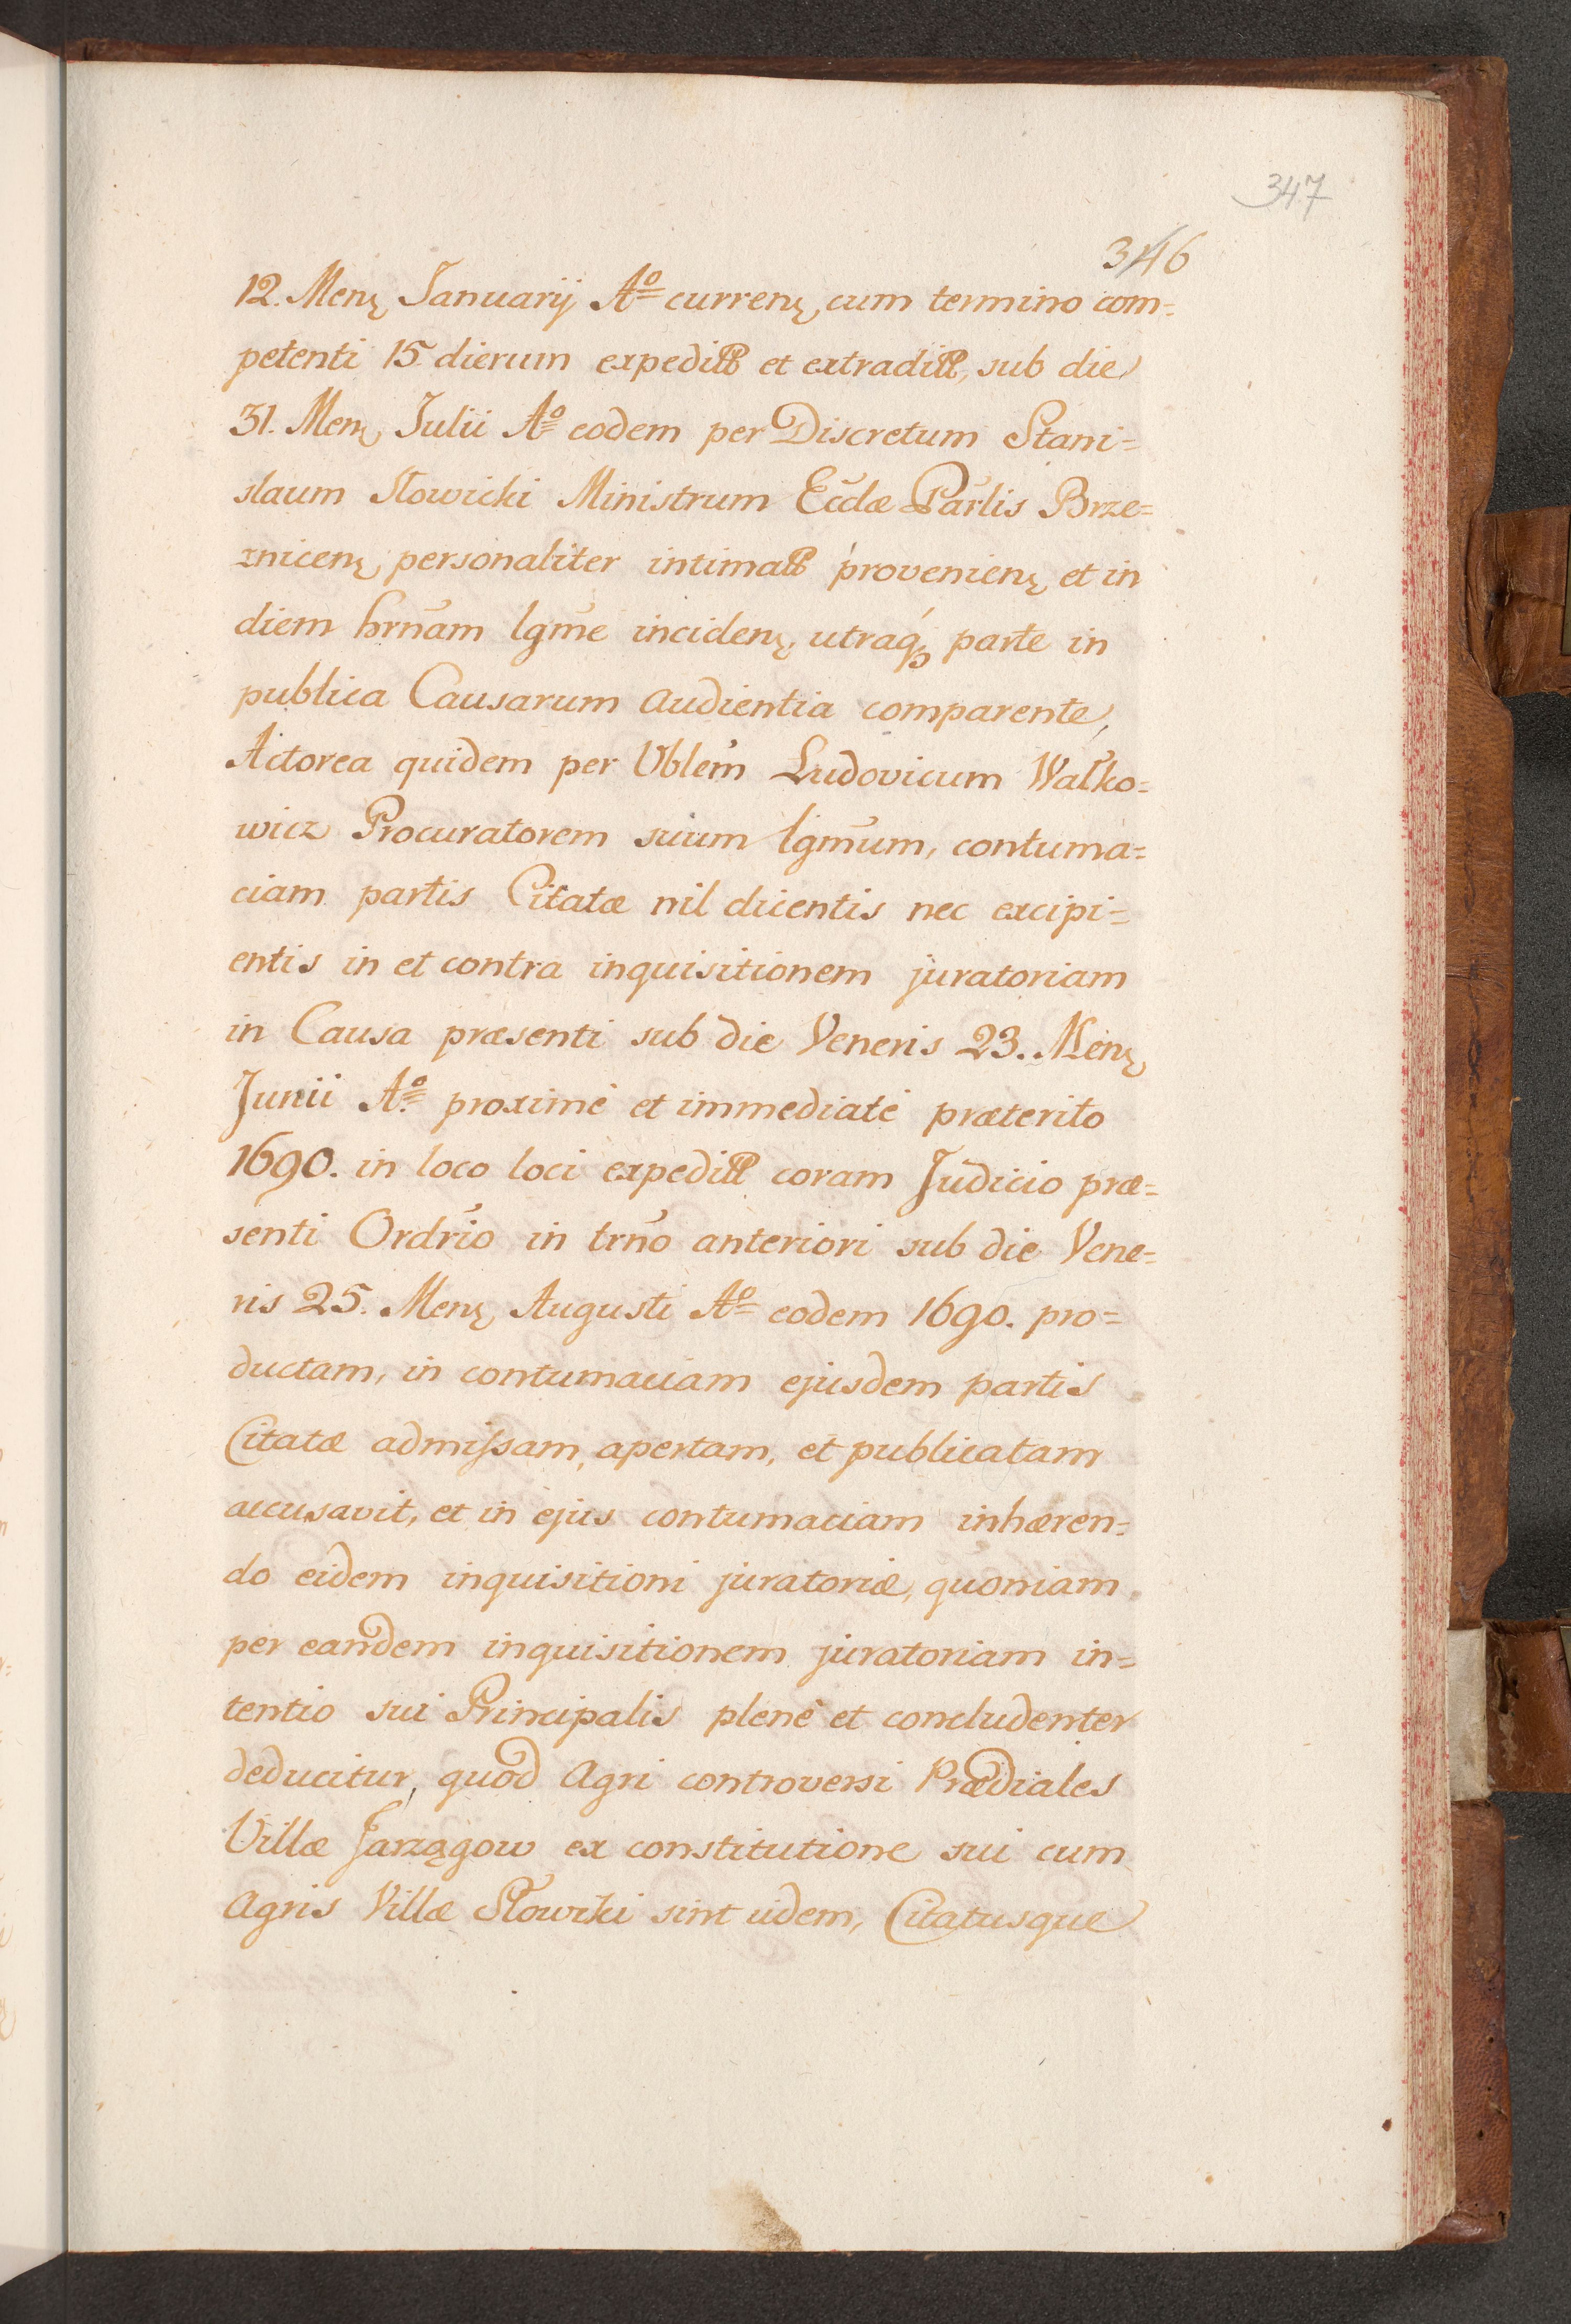 347
346
12. Menȩ Januarij Aº currenȩ, cum termino com=
petenti 15 dierum expeditt et extraditt, sub die
31. Menȩ Julii Aº eodem per Discretum Stani=
slaum Słowicki Ministrum Eccl̃æ Par̃lis Brze=
znicenȩ personaliter intimatt provenienȩ et in
diem hrñam lgm̃e incidenȩ, utraqꝫ parte in
publica Causarum audientia comparente,
Actorea quidem per Vblem̃ Ludovicum Wałko=
wicz Procuratorem suum lgm̃um, contuma=
ciam partis Citatæ nil dicentis nec excipi=
entis in et contra inquisitionem juratoriam
in Causa præsenti sub die Veneris 23. Menȩ
Junii Aº proximè et immediatè præterito
1690. in loco loci expeditt coram Judicio præ=
senti Ordrĩo in trño anteriori sub die Vene=
ris 25. Menȩ Augusti Aº eodem 1690. pro=
ductam, in contumaciam ejusdem partis
Citatæ admissam, apertam, et publicatam
accusavit, et in ejus contumaciam inhæren=
do eidem inquisitioni juratoriæ, quoniam
per eandem inquisitionem juratoriam in=
tentio sui Principalis plenè et concludenter
deducitur, quod agri controversi Prædiales
Villæ Jarzągow ex constitutione sui cum
agris Villæ Słowiki sint iidem, Citatusque